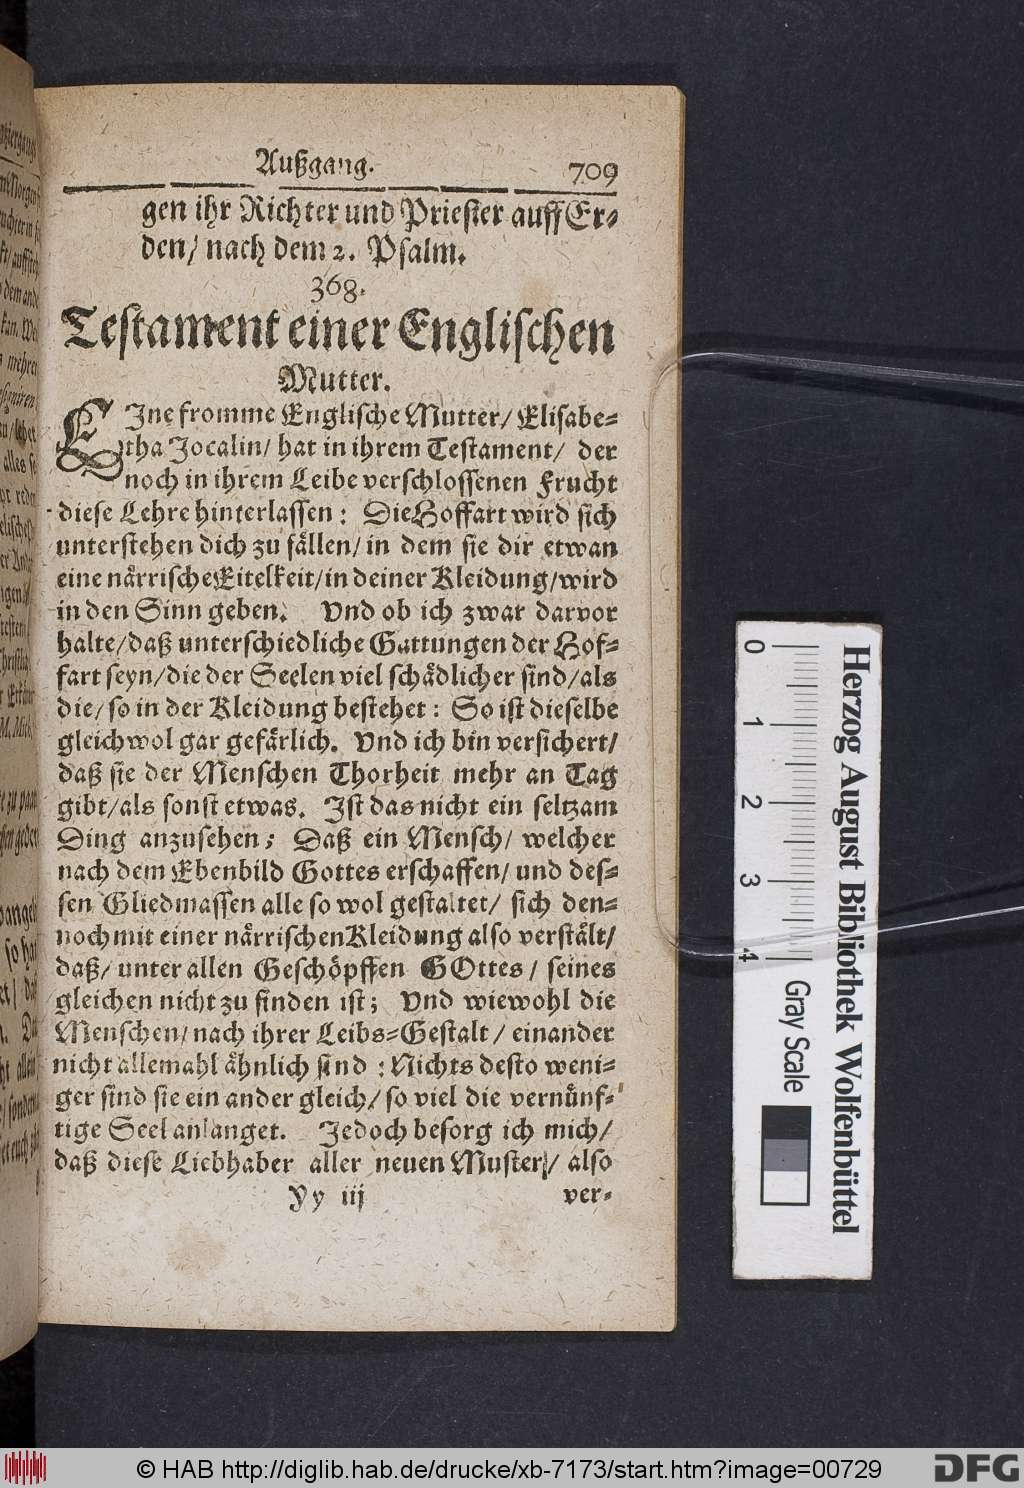 Außgang. 709
gen ihr Richter und Priester auff Er-
den/ nach dem 2. Psalm.
368.
Testament einer Englischen
Mutter.
EIne fromme Englische Mutter/ Elisabe-
tha Jocalin/ hat in ihrem Testament/ der
noch in ihrem Leibe verschlossenen Frucht
diese Lehre hinterlassen: Die Hoffart wird sich
unterstehen dich zu fällen/ in dem sie dir etwan
eine närrische Eitelkeit/ in deiner Kleidung/ wird
in den Sinn geben. Vnd ob ich zwar darvor
halte/ daß unterschiedliche Gattungen der Hof-
fart seyn/ die der Seelen viel schädlicher sind/ als
die/ so in der Kleidung bestehet: So ist dieselbe
gleichwol gar gefärlich. Vnd ich bin versichert/
daß sie der Menschen Thorheit mehr an Tag
gibt/ als sonst etwas. Ist das nicht ein seltzam
Ding anzusehen; Daß ein Mensch/ welcher
nach dem Ebenbild Gottes erschaffen/ und des-
sen Gliedmassen alle so wol gestaltet/ sich den-
noch mit einer närrischen Kleidung also verstält/
daß/ unter allen Geschöpffen GOttes/ seines
gleichen nicht zu finden ist; Vnd wiewohl die
Menschen/ nach ihrer Leibs-Gestalt/ einander
nicht allemahl ähnlich sind: Nichts desto weni-
ger sind sie ein ander gleich/ so viel die vernünf-
tige Seel anlanget. Jedoch besorg ich mich/
daß diese Liebhaber aller neuen Muster/ also
Yy iij ver-
0 1 2 3 4
Herzog August Bibliothek Wolfenbüttel
Gray Scale
© HAB http://diglib.hab.de/drucke/xb-7173/start.htm?image=00729
DFG